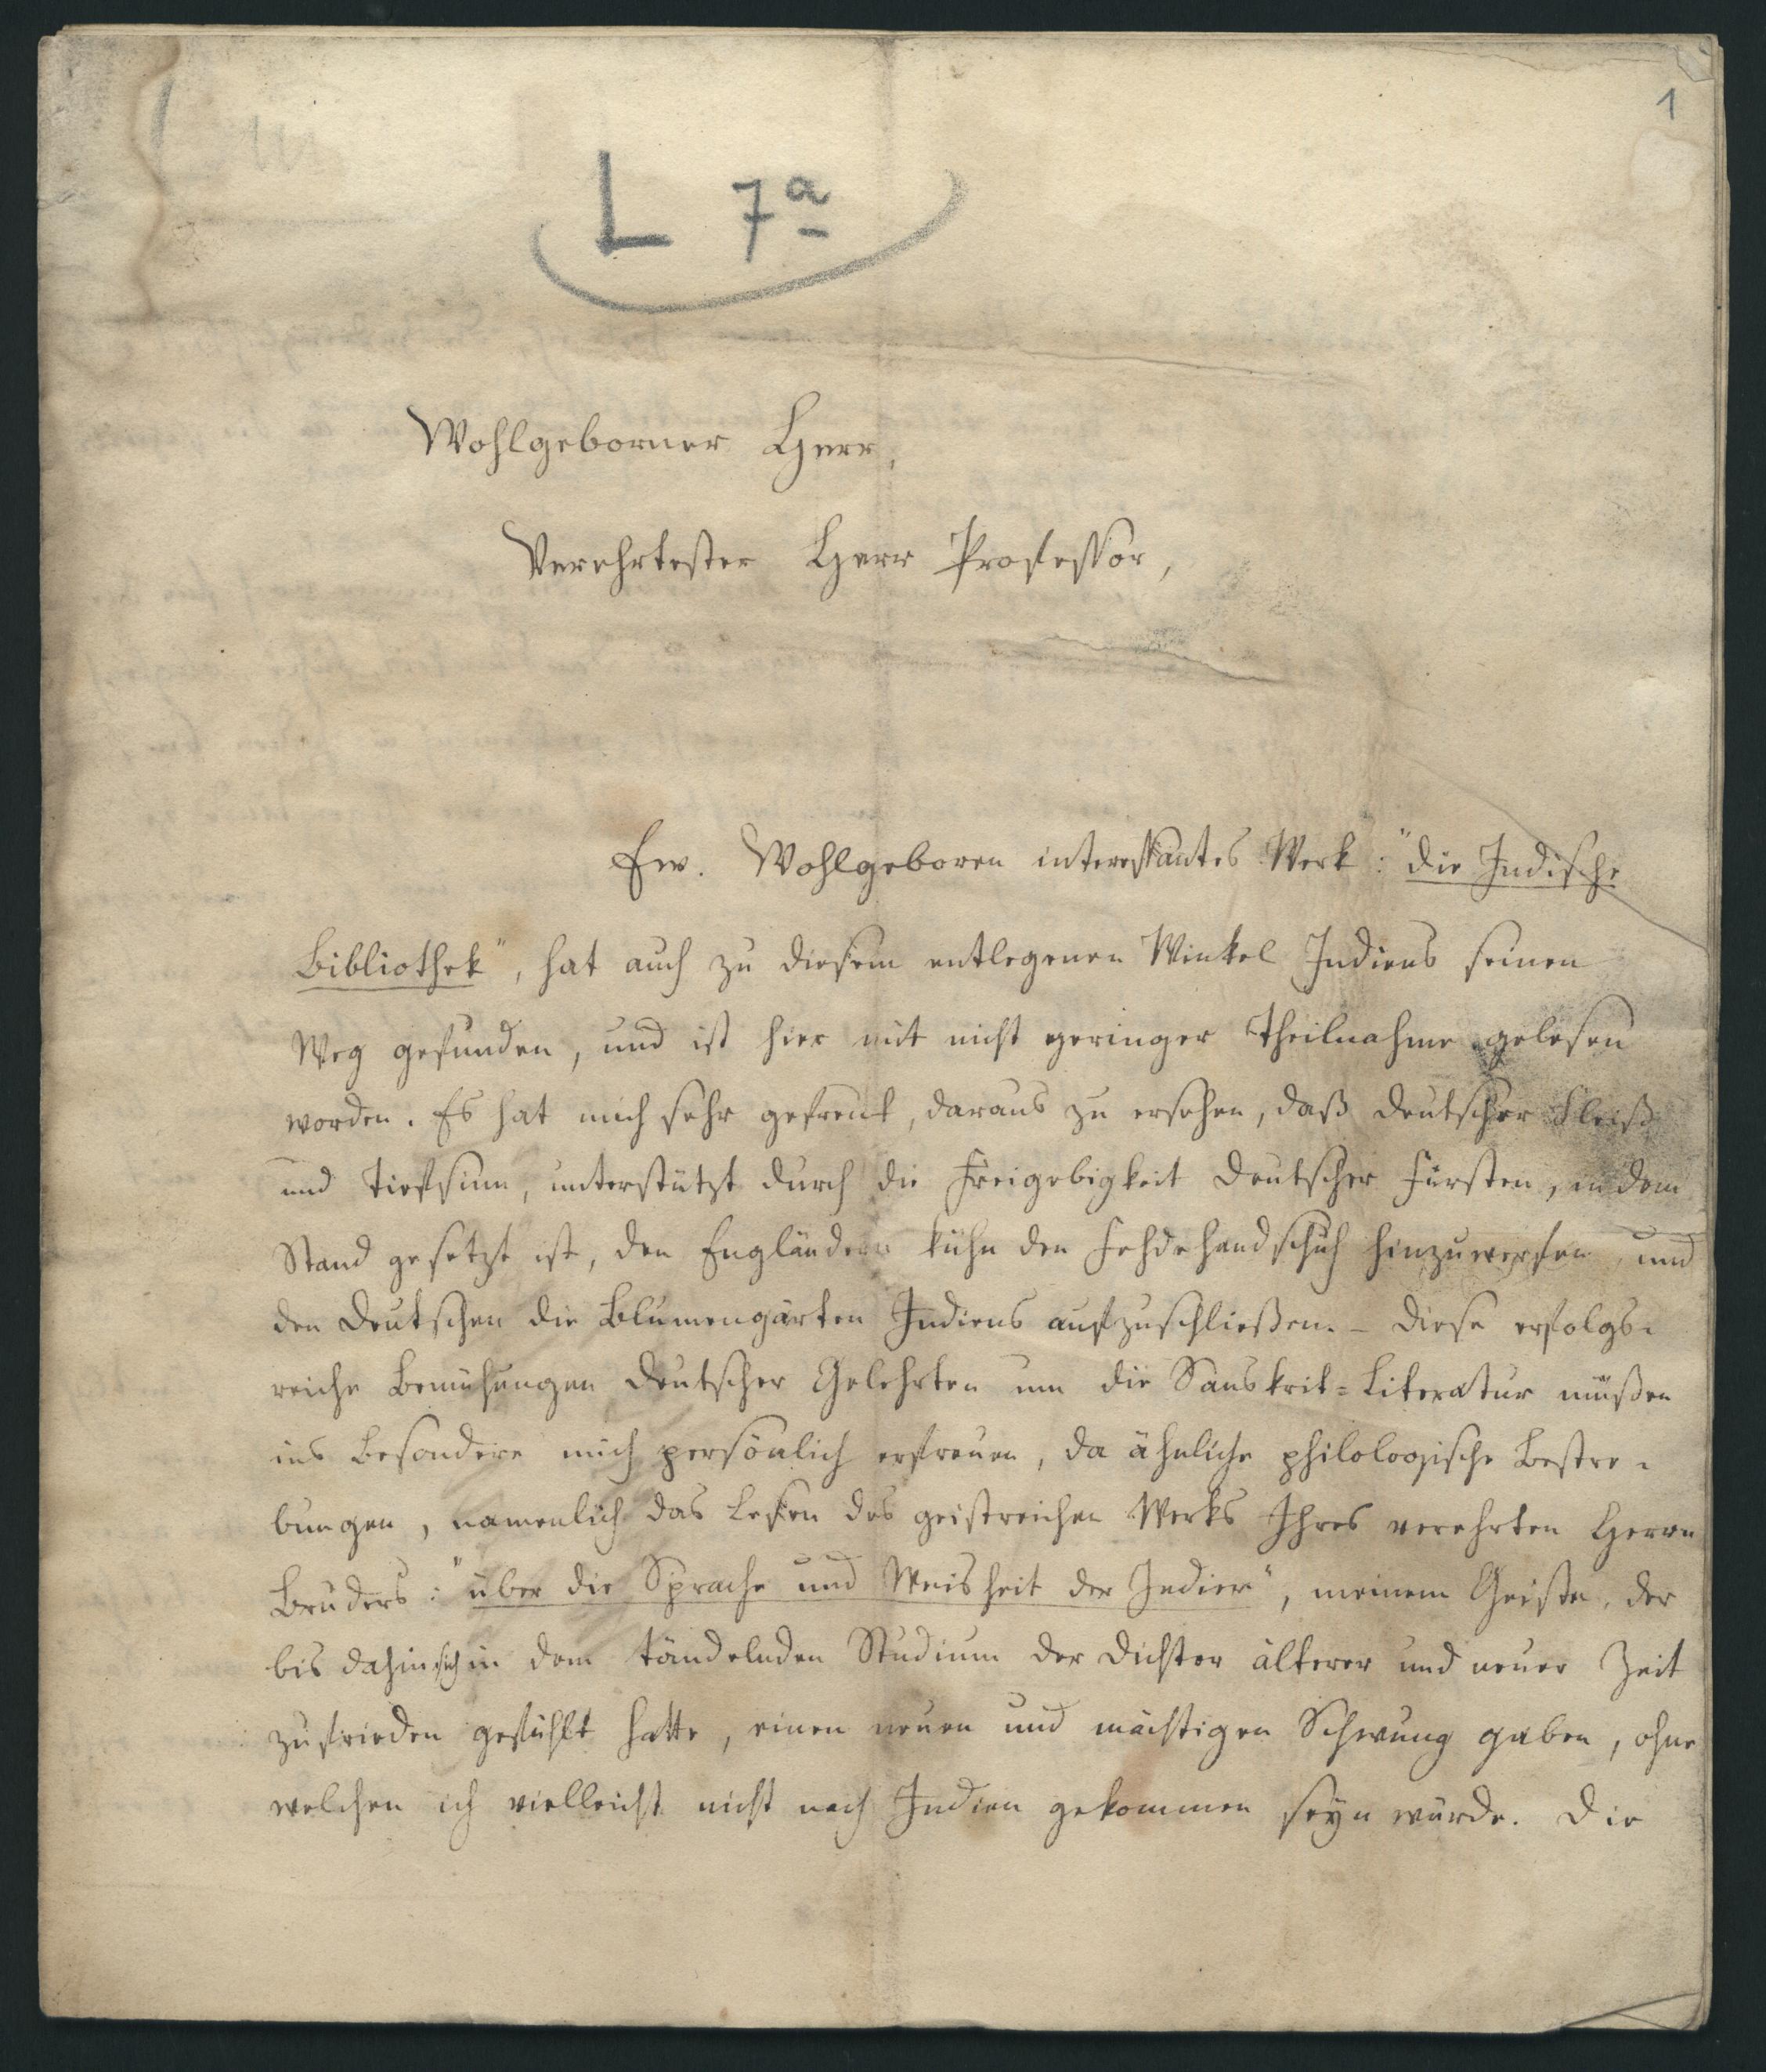 1
L 7a
Wohlgeborner Herr,
Verehrtester Herr Professor,
Ew. Wohlgeboren interessantes Werk: "die Indische
Bibliothek", hat auch zu diesem entlegenen Winkel Indiens seinen
Weg gefunden, und ist hier mit nicht geringer Theilnahme gelesen
worden. Es hat mich sehr gefreut, daraus zu ersehen, daß deutscher Fleiß
und Tiefsinn, unterstützt durch die Freigebigkeit deutscher Fürsten, in dem
Stand gesetzt ist, den Engländern kühn den Fehdehandschuh hinzuwerfen, und
den Deutschen die Blumengärten Indiens aufzuschließen. – Diese erfolgs-
reiche Bemühungen deutscher Gelehrten um die Sanskrit-Literatur müßen
ins besondere mich persönlich erfreuen, da ähnliche philologische Bestre-
bungen, namenlich das Lesen des geistreichen Werks Ihres verehrten Herrn
Bruders: "über die Sprache und Weisheit der Indier", meinem Geiste, der
bis dahin sich in dem tändelnden Studium der Dichter älterer und neuer Zeit
zufrieden gefühlt hatte, einen neuen und mächtigen Schwung gaben, ohne
welchen ich vielleicht nicht nach Indien gekommen seyn würde. Die